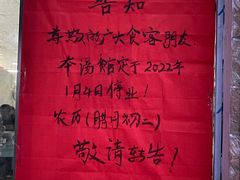 告知
尊敬的广大食客朋友
本汤馆定于2022年
1月4日停业！
农历(腊月初二)
敬请转告！